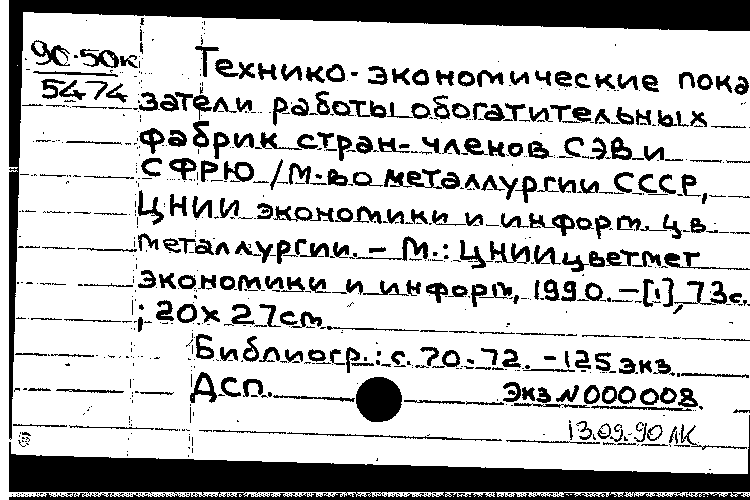 90-50к
5474
Технико-экономические пока
затели работы обогатительных
фабрик стран-членов СЭВ и
СФРЮ /М-во металлургии СССР,
ЦНИИ экономики и информ. цв.
металлургии. – М.: ЦНИИцветмет
экономики и информ, 1990. – [1], 73с.
; 20х27см
Библиогр.: с. 70-72. – 125 экз.
ДСП. Экз N 000008.
13.09.90 ЛК